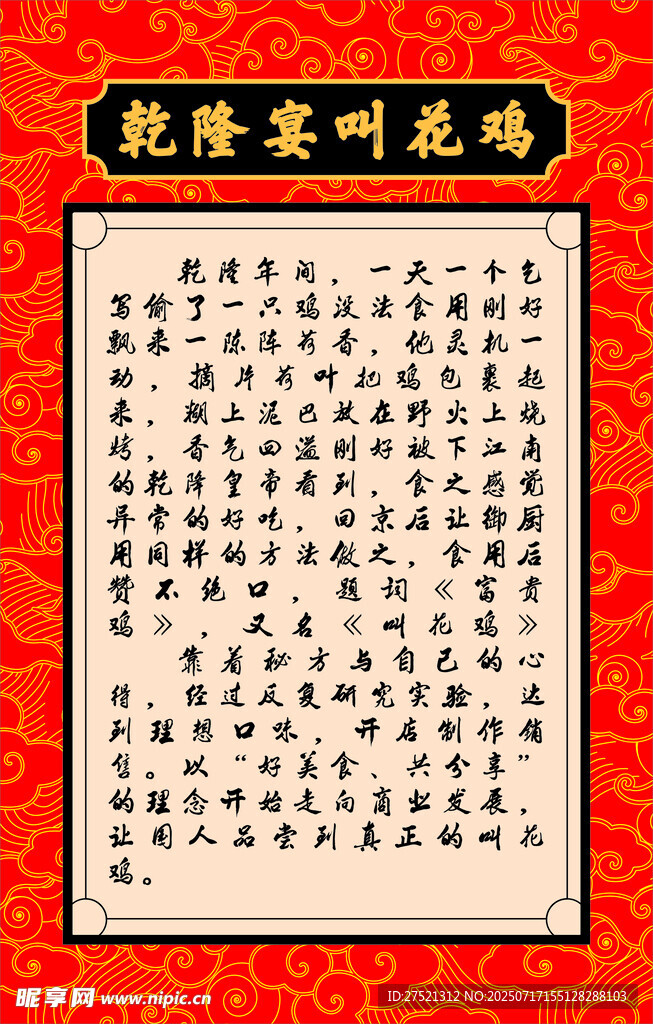 乾隆宴叫花鸡
乾隆年间，一天一个乞
写偷了一只鸡没法食用刚好
飘来一陈阵荷香，他灵机一
动，摘片荷叶把鸡包裹起
来，糊上泥巴放在野火上烧
烤，香气四溢刚好被下江南
的乾隆皇帝看到，食之感觉
异常的好吃，回京后让御厨
用同样的方法做之，食用后
赞不绝口，题词《富贵
鸡》，又名《叫花鸡》
靠着秘方与自己的心
得，经过反复研究实验，达
到理想口味，开店制作销
售。以“好美食、共分享”
的理念开始走向商业发展，
让国人品尝到真正的叫花
鸡。
昵享网 www.nipic.cn
ID:27521312 NO:20250717155128288103